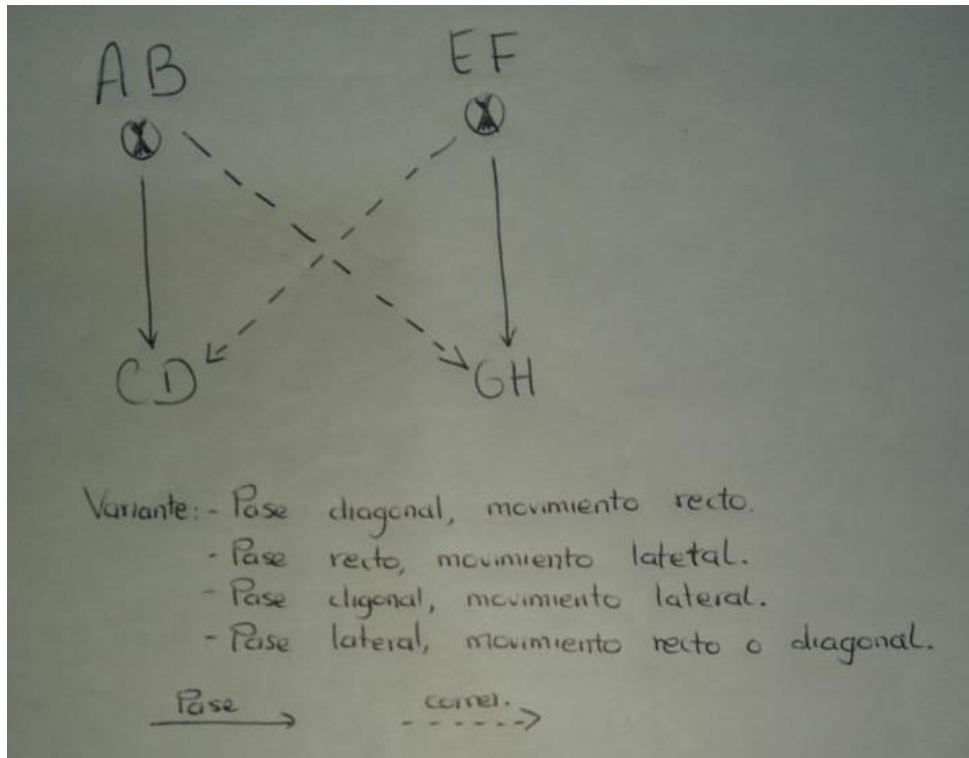 AB EF
CD GH
Variante: - Pase diagonal, movimiento recto.
- Pase recto, movimiento latetal.
- Pase digonal, movimiento lateral.
- Pase lateral, movimiento recto o diagonal.
Pase correr.